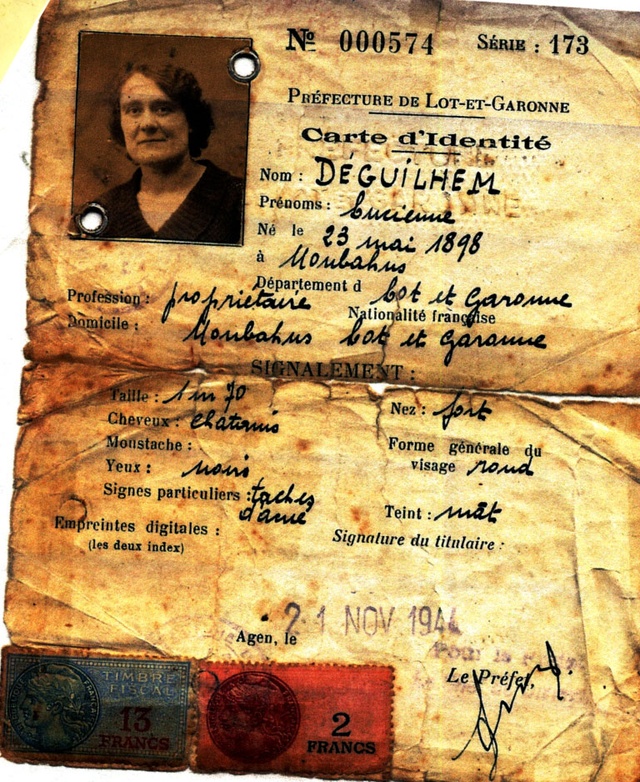 Nº 000574 SÉRIE : 173
PRÉFECTURE DE LOT-ET-GARONNE
Carte d'Identité
Nom : DÉGUILHEM
Prénoms : Lucienne
Né le 23 mai 1898
à Monbahus
Département d Lot et Garonne
Profession : propriétaire Nationalité française
Domicile : Monbahus Lot et Garonne
SIGNALEMENT :
Taille : 1m70 Nez : fort
Cheveux : chatains
Moustache : Forme générale du
Yeux : noirs visage rond
Signes particuliers : taches
Teint : mât
Empreintes digitales : Signature du titulaire :
(les deux index)
Agen, le 21 NOV 1944
Le Préfet,
TIMBRE
FISCAL
13
FRANCS
2
FRANCS